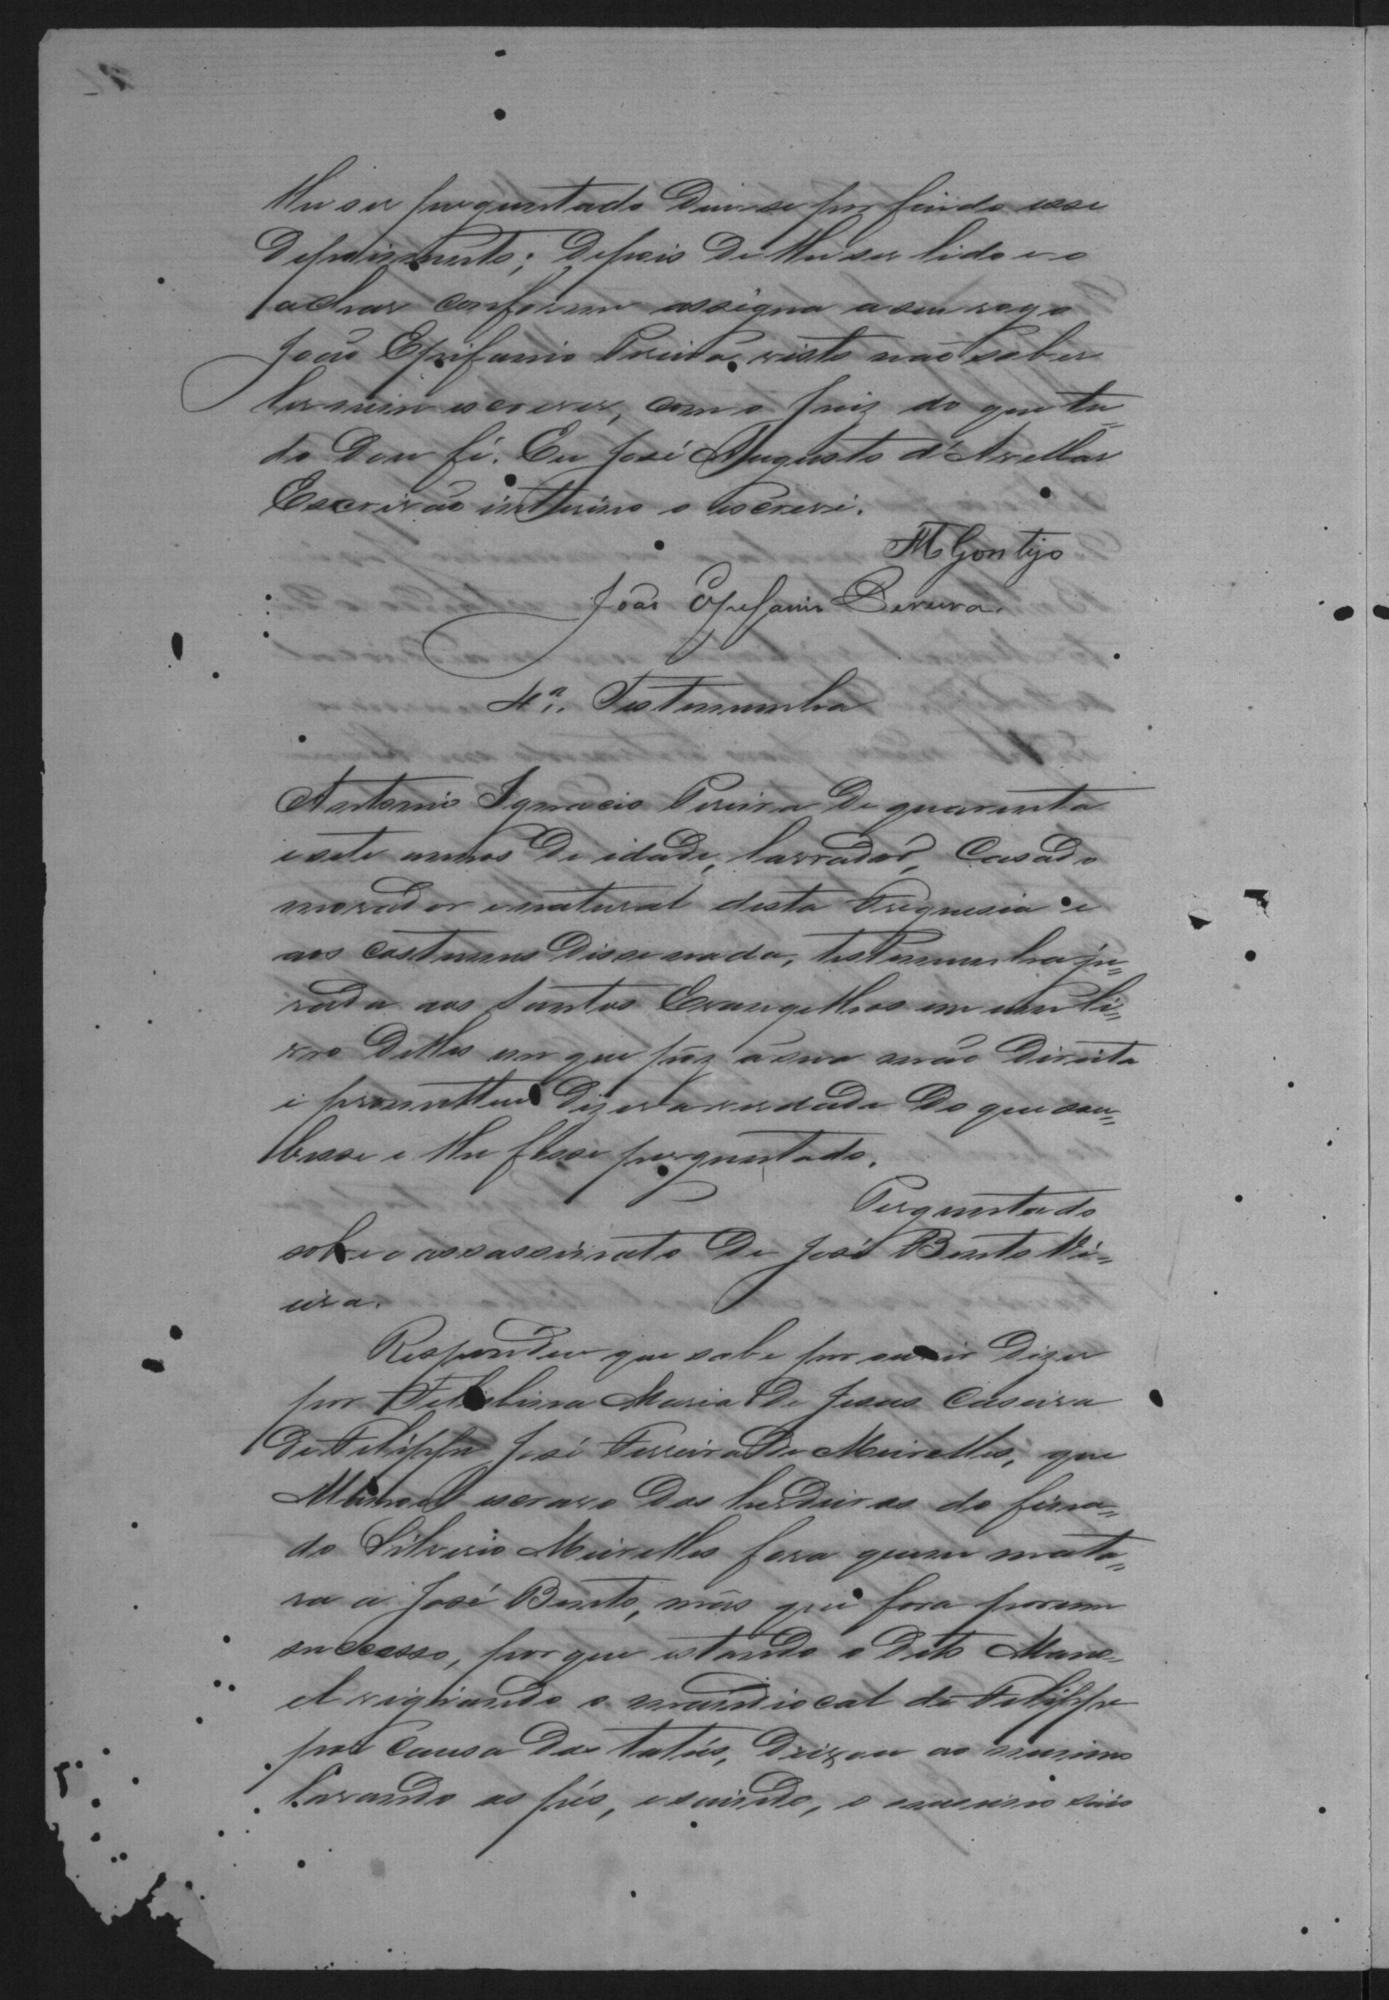 lhe ser perguntado deu-se por findo esse
depoimento; depois de lhe ser lido e o
achar conforme assigna a seu rogo
João Epifanio Pereira visto não saber
ler nem escrever, com o Juiz do que tu=
do dou fé. Eu José Augusto d'Avellar
Escrivão interino o escrevi.
M Gontijo
João Epefanio Pereira.
4ª. Testemunha
Antonio Ignacio Pereira de quarenta
e sete annos de idade, lavrador, casado
morador e natural desta Freguesia e
aos costumes disse nada, testemunha ju=
rada aos Santos Evangelhos em um li=
vro delles em que pôz a sua mão direita
e prometteu dizer a verdade do que sou=
besse e lhe fosse perguntado.
Perguntado
sobre o assassinato de José Bento Vi=
eira.
Respondeu que sabe por ouvir dizer
por Felisbina Maria de Jesus caseira
de Felippe José Ferreira de Meirelles, que
Manoel escravo dos herdeiros do fina=
do Silverio Meirelles fora quem mata=
ra a José Bento, mas que fora por um
successo, porque estando o dito Mano=
el vigiando o mandiocal de Felippe
por causa dos tatús, deixou ao mesmo
lavando os pés, e saindo, o mesmo